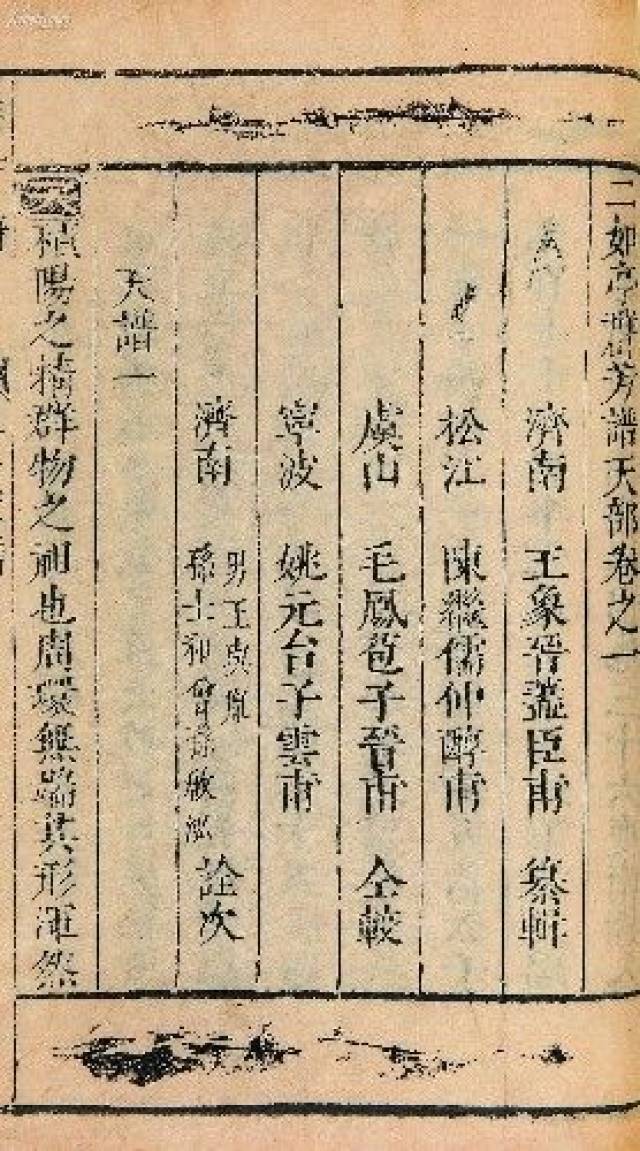 二如亭群芳譜天部卷之一
濟南 王象晉藎臣甫 纂輯
松江 陳繼儒仲醇甫
虞山 毛鳳苞子晉甫 仝較
寧波 姚元台子雲甫
濟南 男王與胤
孫士和曾孫啟泓 詮次
天譜一
積陽之精群物之祖也周環無端其形渾然